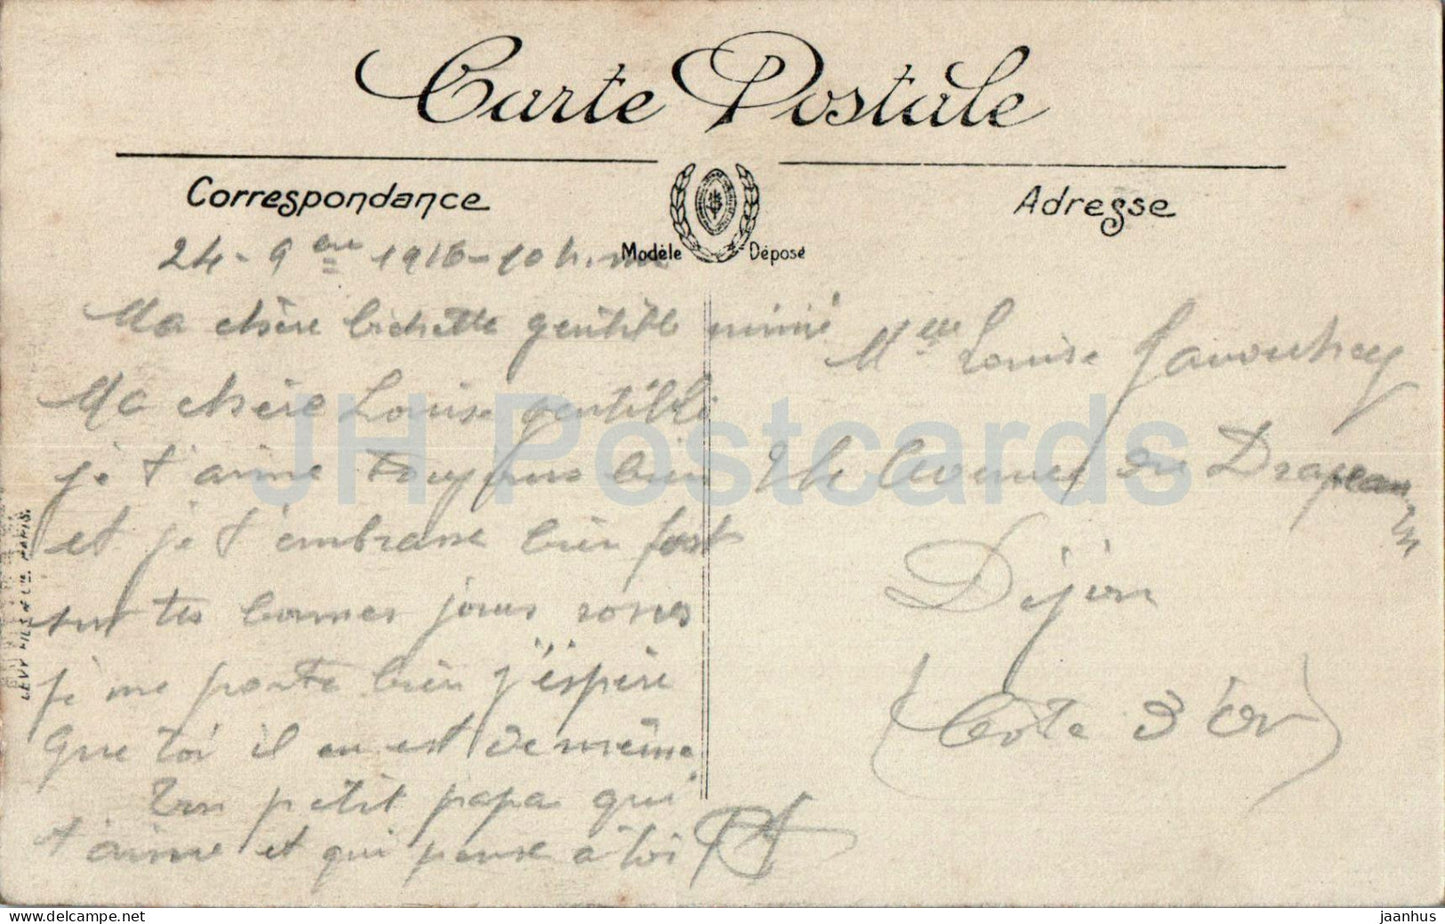 Carte Postale
Correspondance
Adresse
Modèle Déposé
24 - 9 bre 1916 - 10 h. m
Ma chère bichette gentille mimi
Ma chère Louise gentille
je t'aime toujours bien
et je t'embrasse bien fort
sur tes bonnes joues roses
je me porte bien j'espère
que toi il en est de même
Ton petit papa qui
t'aime et qui pense à toi
Melle Louise
24 Avenue du Drapeau 24
Dijon
(Côte d'Or)
LEVY FILS & Cie PARIS.
JH Postcards
www.delcampe.net
jaanhus